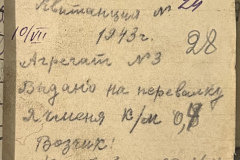 Квитанция № 24
10/VII 1943г.
28
Агрегат № 3
Выдано на перевалку
Ячменя в/м 0,4
Возчик: